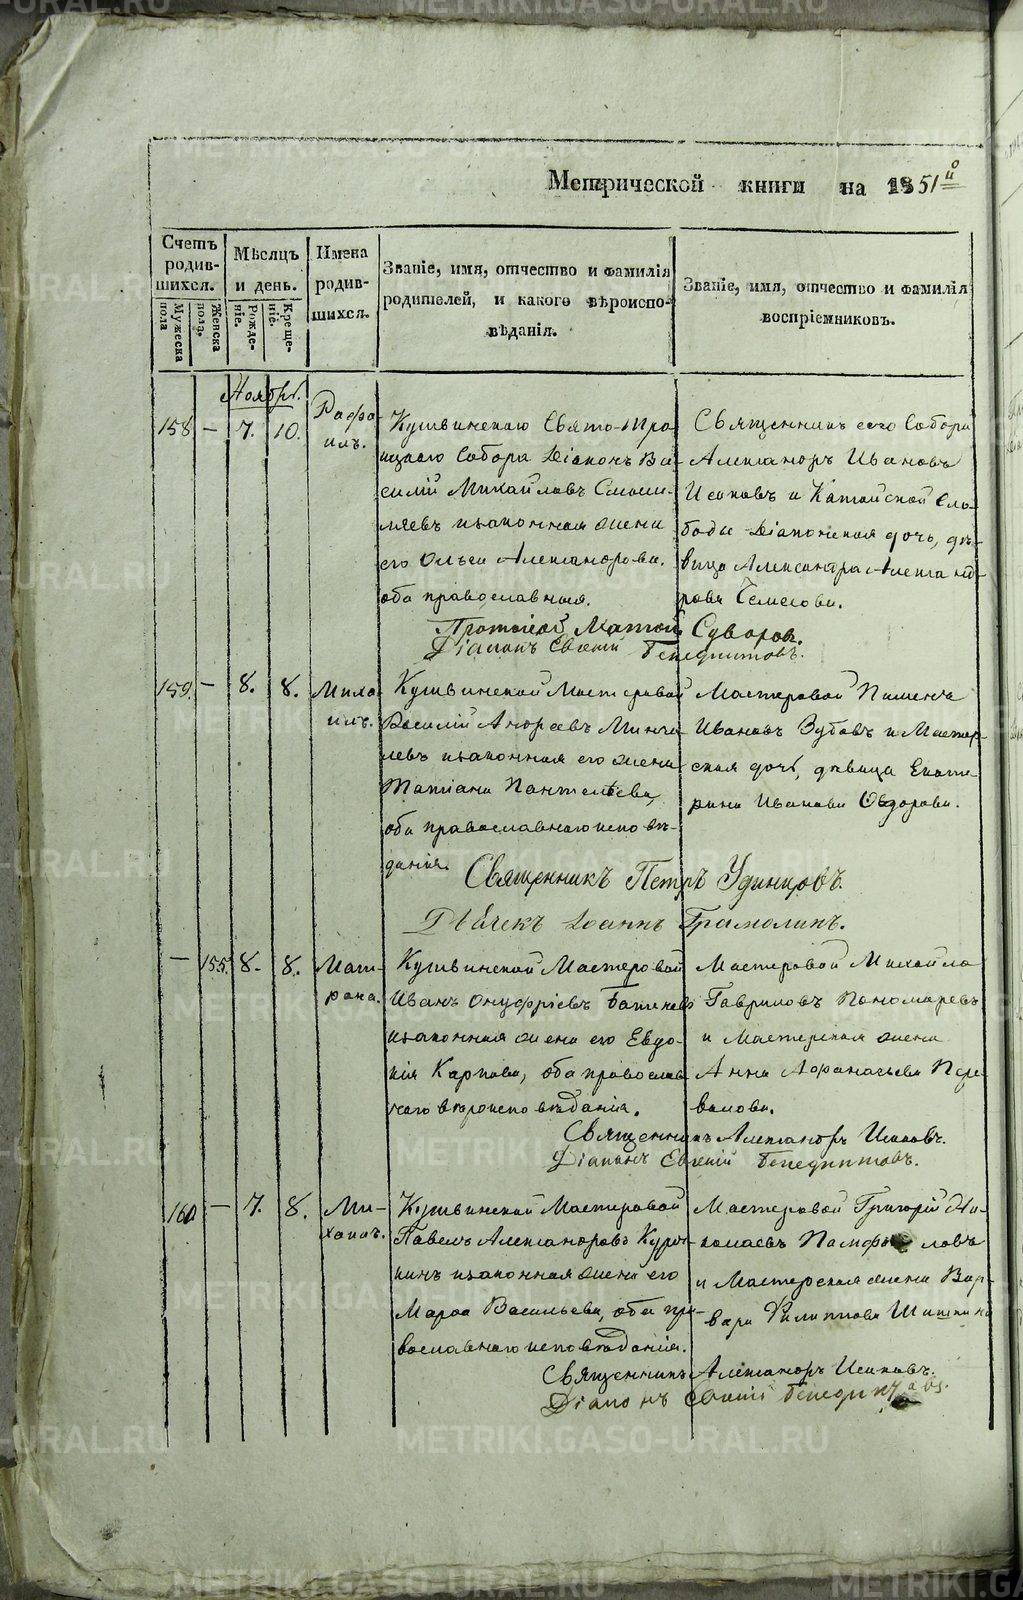 Метрической книги на 1851й
Счетъ родившихся.
Мужеска пола
Женска пола.
Мѣсяцъ и день.
Рожденіе.
Крещеніе.
Имена родившихся.
Званіе, имя, отчество и фамилія
родителей, и какого вѣроиспо-
вѣданія.
Званіе, имя, отчество и фамилія
воспріемниковъ.
Ноябрь.
158 — 7. 10.
Рафа-
илъ.
Кушвинскаго Свято-Тро
ицкаго Собора Діаконъ Ва-
силій Михайловъ
и законная жена
его Ольга Александрова,
оба православныя.
Священникъ сего Собора
Александръ Ивановъ
Исаковъ и Катайской Сло-
боды Діаконская дочь, дѣ-
вица Александра Александ-
рова
Протоіерей Матѳей Суворов.
Діаконъ Евгеній Бенедиктовъ.
159. — 8. 8.
Миха
илъ.
Кушвинской Мастеровой
Василій Андреевъ
и законная его жена
Татіана Пантелѣева,
оба православнаго исповѣ-
данія.
Мастеровой Пименъ
Ивановъ Зубовъ и Мастер-
ская дочь, дѣвица Екате-
рина Иванова Ѳедорова.
Священникъ Петръ Удинцовъ.
Дьячекъ Іоаннъ Грамолинъ.
— 155. 8. 8.
Мат-
рона.
Кушвинской Мастеровой
Иванъ Онуфріевъ
и законная жена его Евдо-
кія Карпова, оба православ
наго вѣроисповѣданія.
Мастеровой Михайло
Гавриловъ Пономаревъ
и Мастерская жена
Анна Афанасьева Пере
валова.
Священникъ Александръ Исаковъ.
Діаконъ Евгеній Бенедиктовъ.
160 — 7. 8.
Ми-
хаилъ.
Кушвинской Мастеровой
Павелъ Александровъ Куроч-
кинъ и законная жена его
Марѳа Васильева, оба пра-
вославнаго исповѣданія.
Мастеровой Григорій Ни-
колаевъ
и Мастерская жена Вар-
вара Филиппова Шишкина
Священникъ Александръ Исаковъ.
Діаконъ Евгеній Бенедиктовъ.
METRIKI.GASO-URAL.RU